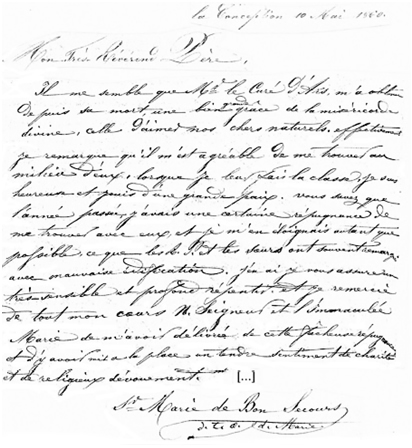 la Conception 10 Mai 1860.
Mon Très Révérend Père,
Il me semble que Mr. le Curé d'Ars, m'a obtenu
depuis sa mort, une bien gde grâce de la miséricorde
divine, celle d'aimer nos chers naturels. effectivement
je remarque qu'il m'est agréable de me trouver au
milieu d'eux, lorsque je leur fais la classe, je suis
heureuse et jouis d'une grande paix. vous savez que
l'année passée, j'avais une certaine répugnance de
me trouver avec eux, et je m'en éloignais autant que
possible, ce que les et les Sœurs ont souvent remarqué
avec mauvaise édification. j'en ai je vous assure un
très sensible et profond repentir, et je remercie
de tout mon cœur N. Seigneur et l'immaculée
Marie de m'avoir délivrée de cette fâcheuse répugnance
et d'y avoir mis à la place un tendre sentiment de charité
et de religieux dévouement. [...]
Sr. Marie de Bon Secours
d. t. o. d. Marie